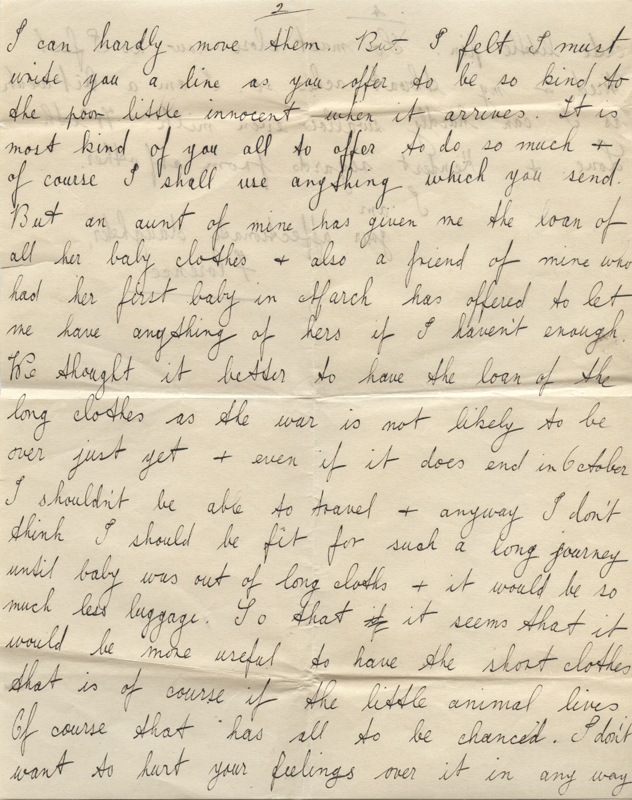 2
I can hardly move them. But I felt I must
write you a line as you offer to be so kind to
the poor little innocent when it arrives. It is
most kind of you all to offer to do so much +
of course I shall use anything which you send.
But an aunt of mine has given me the loan of
all her baby clothes + also a friend of mine who
had her first baby in March has offered to let
me have anything of hers if I haven't enough.
We thought it better to have the loan of the
long clothes as the war is not likely to be
over just yet + even if it does end in October
I shouldn't be able to travel + anyway I don't
think I should be fit for such a long journey
until baby was out of long cloths + it would be so
much less luggage. So that it seems that it
would be more useful to have the short clothes
that is of course if the little animal lives
Of course that has all to be chanced. I don't
want to hurt your feelings over it in any way